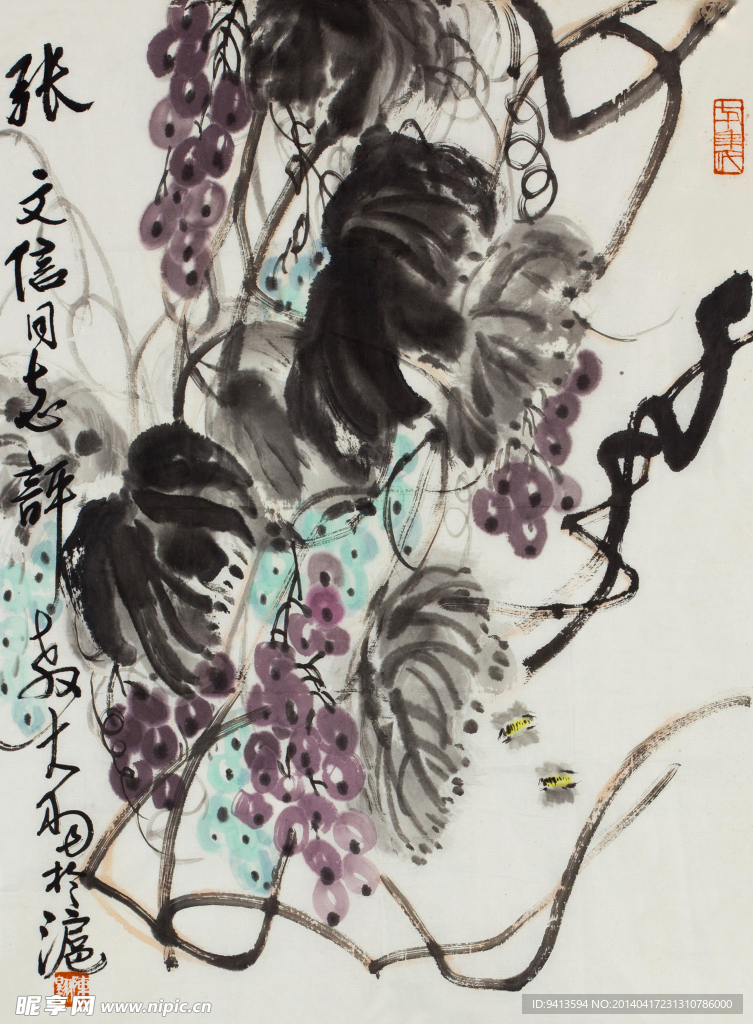 张文信同志評教大羽於滬
昵享网 www.nipic.cn
ID:9413594 NO:20140417231310786000